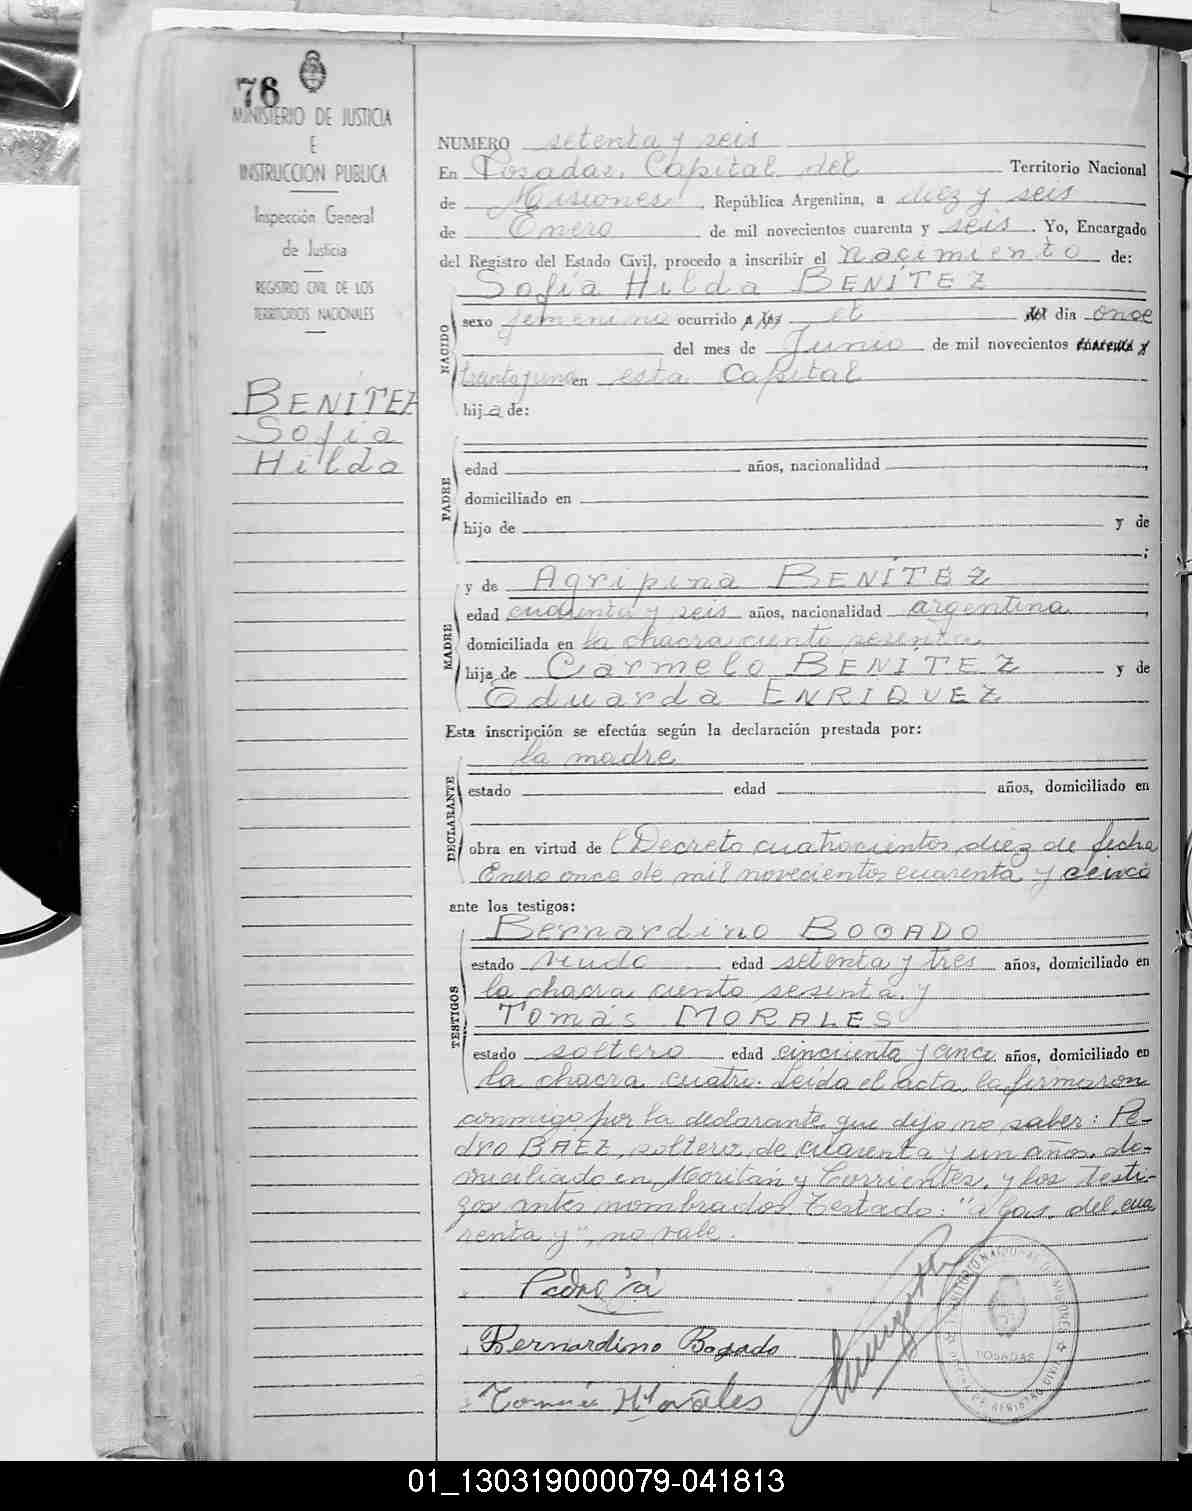 76
MINISTERIO DE JUSTICIA
E
INSTRUCCION PUBLICA
Inspección General
de Justicia
REGISTRO CIVIL DE LOS
TERRITORIOS NACIONALES
BENÍTEZ
Sofía
Hilda
NUMERO setenta y seis
En Posadas, Capital del Territorio Nacional
de Misiones, República Argentina, a diez y seis
de Enero de mil novecientos cuarenta y seis. Yo, Encargado
del Registro del Estado Civil, procedo a inscribir el nacimiento de:
Sofía Hilda BENÍTEZ
NACIDO
sexo femenino ocurrido a las el del dia once
del mes de Junio de mil novecientos cuarenta y
treinta y uno en esta Capital
hija de:
PADRE
edad años, nacionalidad
domiciliado en
hijo de y de
;
MADRE
y de Agripina BENÍTEZ
edad cuarenta y seis años, nacionalidad argentina,
domiciliada en la chacra ciento sesenta
hija de Carmelo BENÍTEZ y de
Eduarda ENRIQUEZ
Esta inscripción se efectúa según la declaración prestada por:
la madre
DECLARANTE
estado edad años, domiciliado en
obra en virtud de Decreto cuatrocientos diez de fecha
Enero once de mil novecientos cuarenta y cinco
ante los testigos:
TESTIGOS
Bernardino BOGADO
estado viudo edad setenta y tres años, domiciliado en
la chacra ciento sesenta y
Tomás MORALES
estado soltero edad cincuenta y cinco años, domiciliado en
la chacra cuatro. Leída el acta, la firmaron
conmigo, por la declarante que dijo no saber: Pe-
dro BAEZ, soltero, de cuarenta y un años, do-
miciliado en y Corrientes, y los testi-
gos antes nombrados. Testado: "a las, del, cua
renta y", no vale.
Pedro
Bernardino Bogado
Morales
POSADAS
01_130319000079-041813